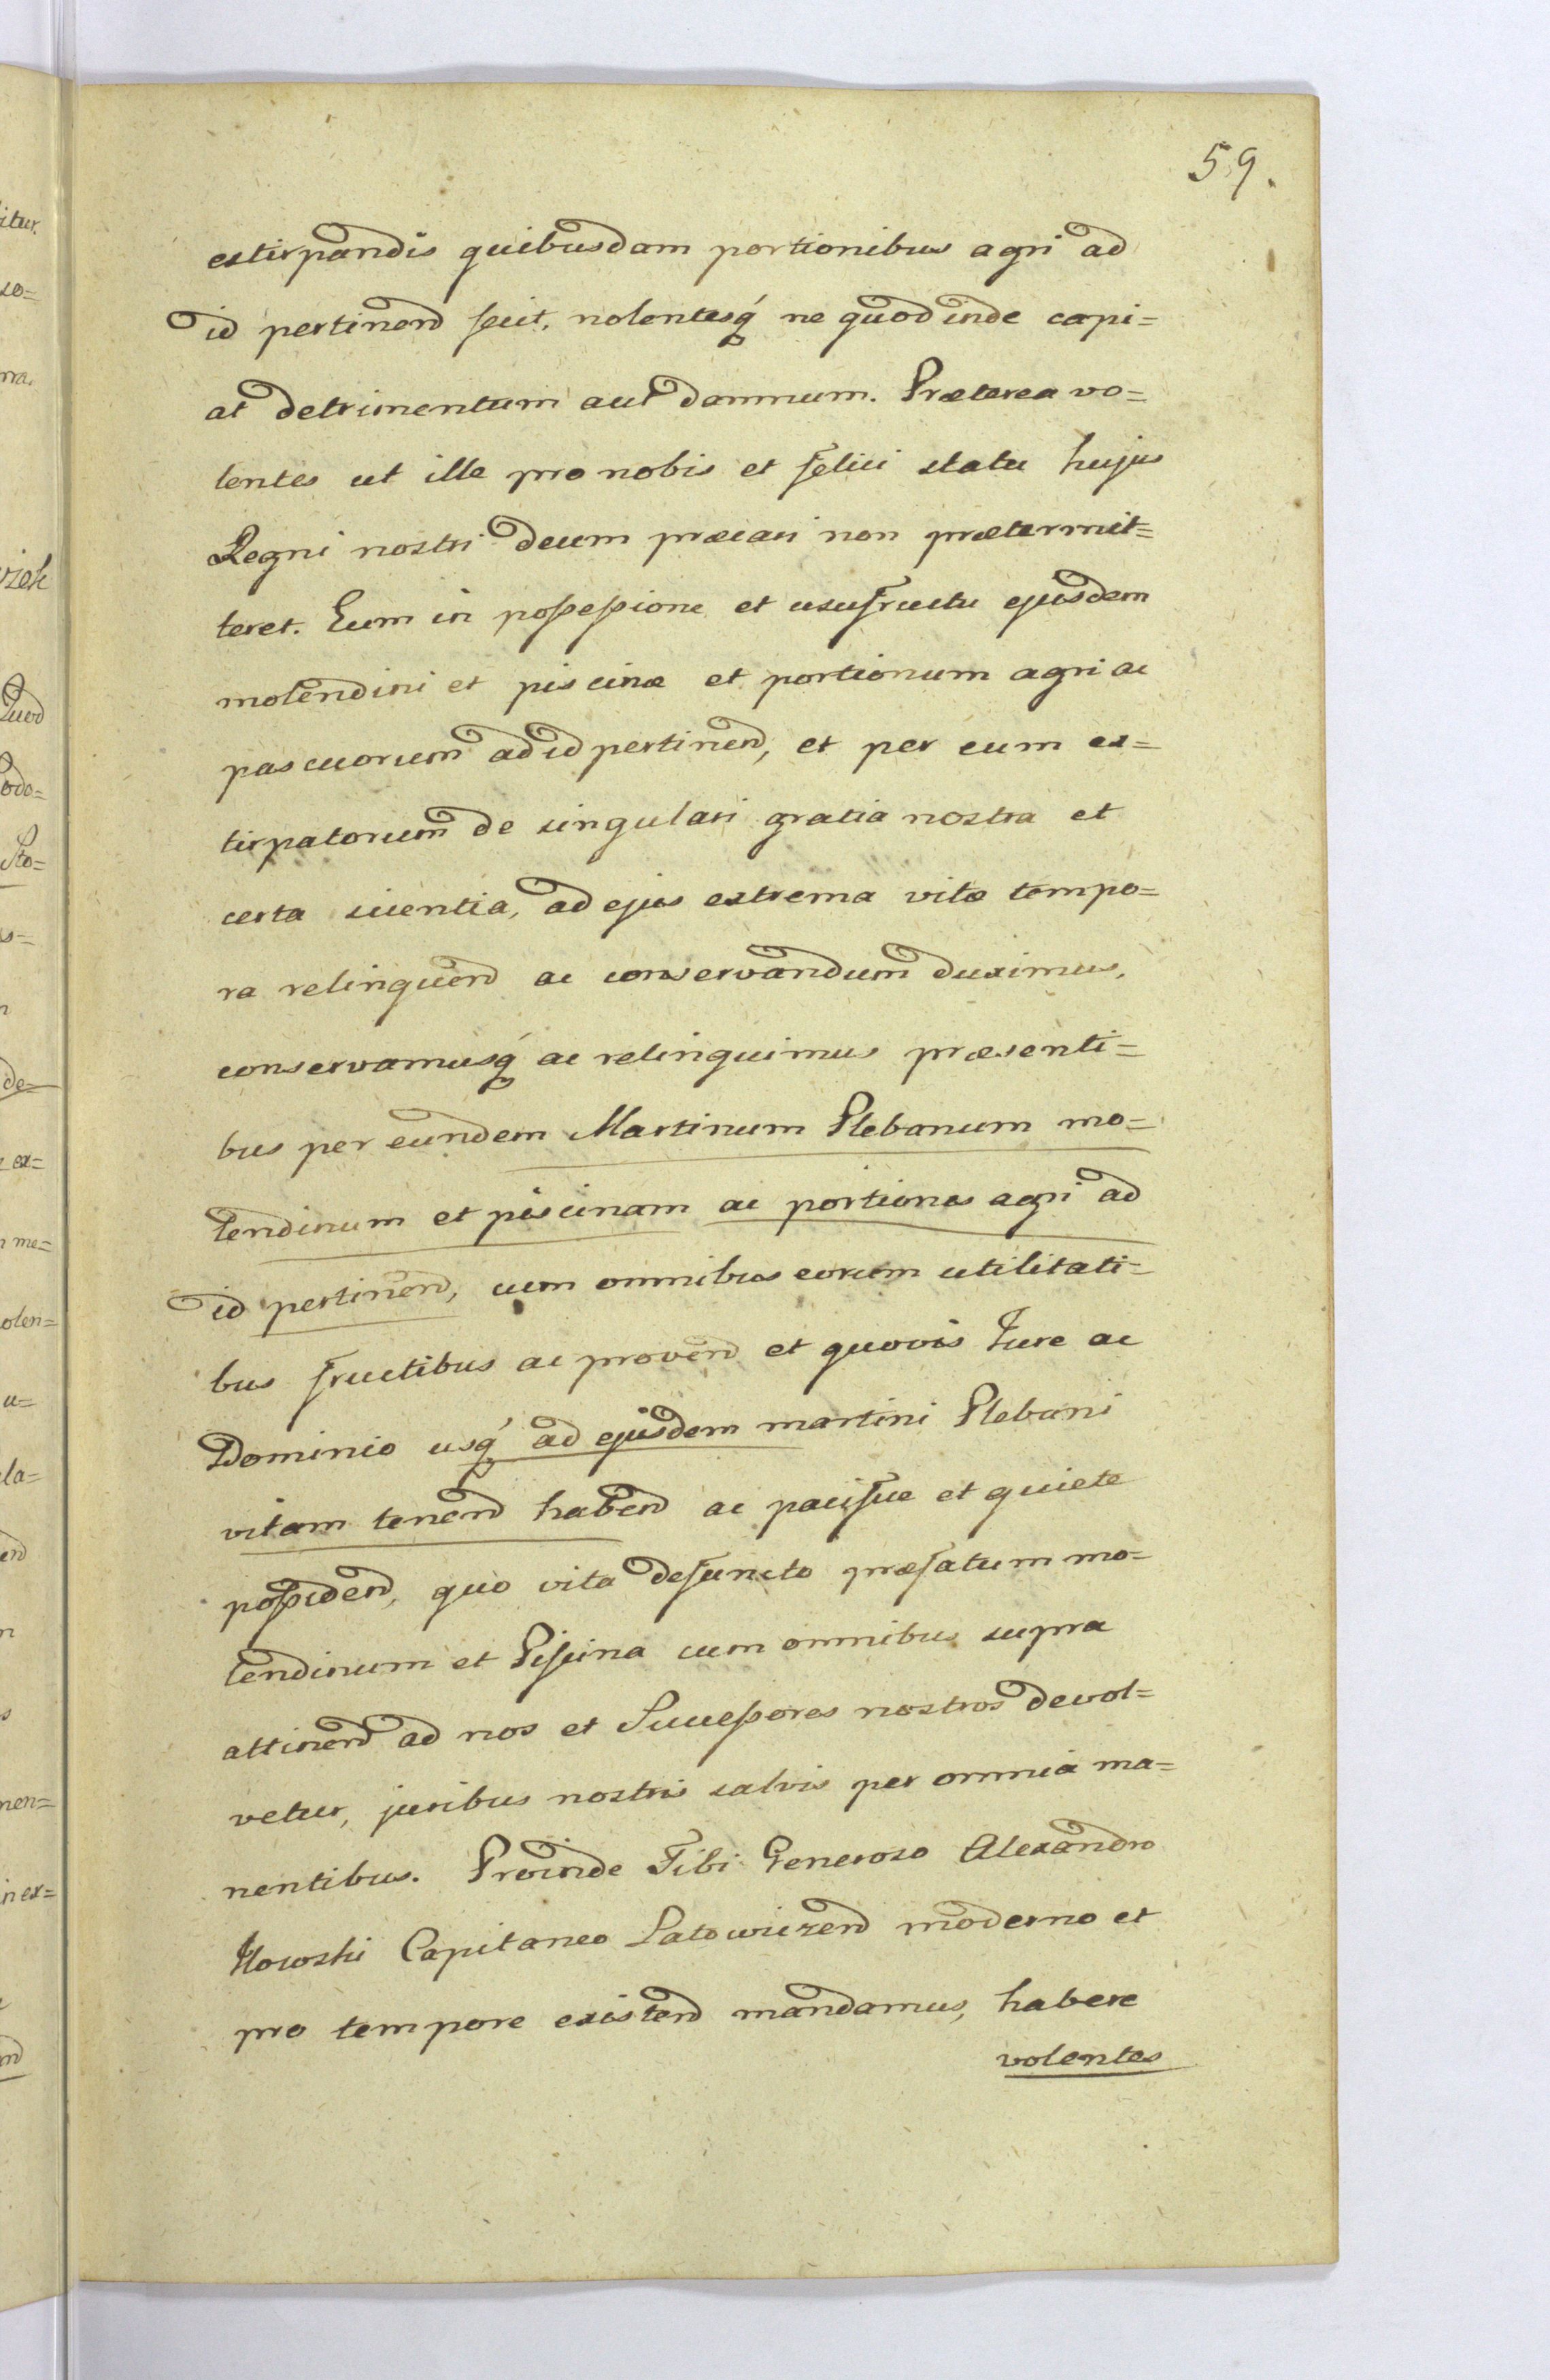 59.
extirpandis quibusdam portionibus agri ad
id pertinend fecit, nolentesq́ ne quod inde capi=
at detrimentum aut damnum. Præterea vo=
lentes ut ille pro nobis et felici statu hujus
Regni nostri deum præcari non prætermit=
teret. Eum in possessione et usufructu ejusdem
molendini et piscinæ et portionum agri ac
pascuorum ad id pertinend, et per eum ex=
tirpatorum de singulari gratia nostra et
certa scientia, ad ejus extrema vitæ tempo=
ra relinquend ac conservandum duximus,
conservamusq́ ac relinquimus præsenti=
bus per eundem Martinum Plebanum mo=
lendinum et piscinam ac portiones agri ad
id pertinend, cum omnibus eorum utilitati=
bus fructibus ac provend et quovis Jure ac
Dominio usq́ ad ejusdem martini Plebani
vitam tenend habend ac pacifice et quiete
possidend, quo vita defuncto præfatum mo=
lendinum et Piscina cum omnibus supra
attinend ad nos et Successores nostros devol=
vetur, juribus nostris salvis per omnia ma=
nentibus. Proinde Tibi Generoso Alexandro
Capitaneo Latowiczend moderno et
pro tempore existend mandamus, habere
volentes
itur.
so=
rra.
Quod
odo=
Sto=
s=
n
de=
ex=
me=
olen=
u=
la=
end
n
s
nen=
in ex=